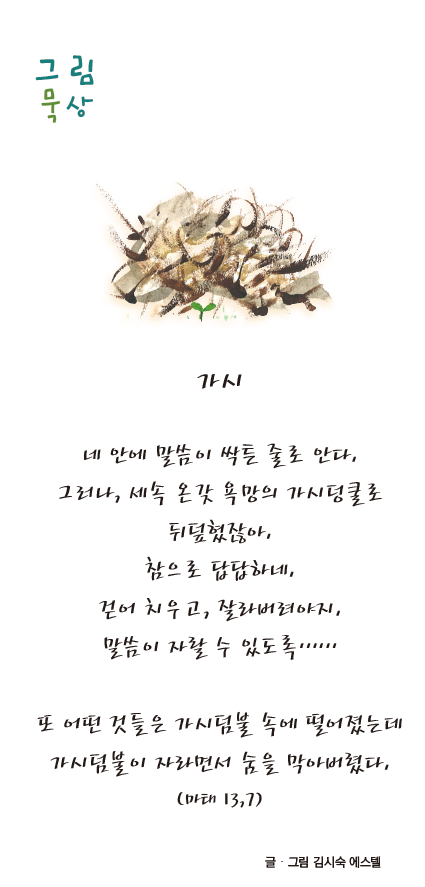 그림
묵상
가시
네 안에 말씀이 싹튼 줄로 안다.
그러나, 세속 온갖 욕망의 가시덩쿨로
뒤덮혔잖아.
참으로 답답하네.
걷어 치우고, 잘라버려야지.
말씀이 자랄 수 있도록……
또 어떤 것들은 가시덤불 속에 떨어졌는데
가시덤불이 자라면서 숨을 막아버렸다.
(마태 13,7)
글 · 그림 김시숙 에스텔